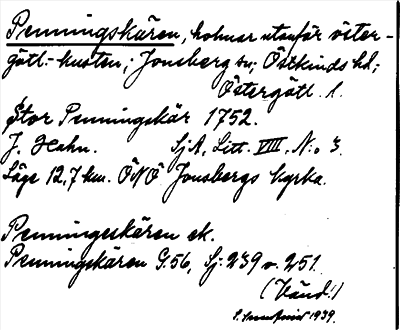 Penningskären, holmar utanför öster-
götl.-kusten; Jonsberg sn; Östkinds hd;
Östergötl. l.
Stor Penningskär 1752.
J. Hahn. SjA, Litt. VIII, N:o 3.
Läge 12,7 km. ÖNÖ Jonsbergs kyrka.
Penningskären ek.
Penningskären G:56, Sj: 239 v. 251.
(Vänd!)
1939.